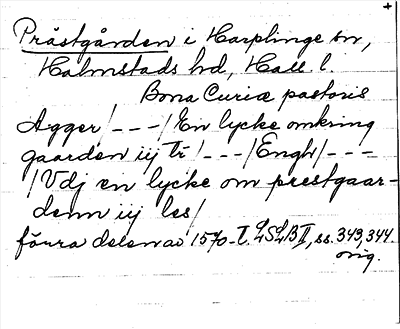 +
Prästgården i Harplinge sn,
Halmstads hd, Hall. l.
Bona Curiæ pastoris
Agger/---/En lycke omkring
gaarden iij tr/---/Engh/---
/Vdj en lycke om prestgaar-
denn iij les/
förra delen av 1570-t. LSLB II, ss. 343, 344.
orig.